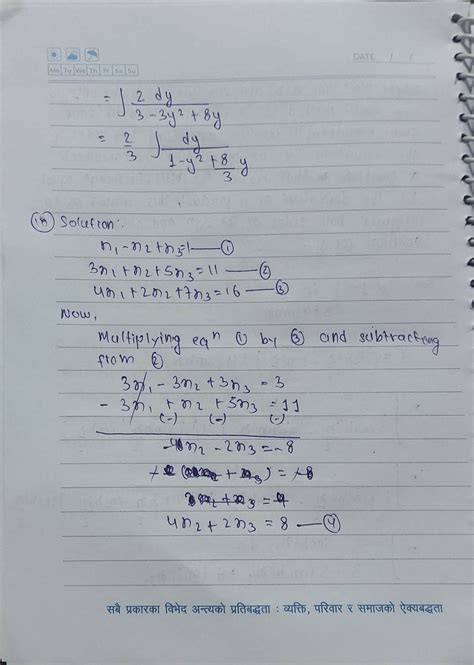 DATE / /
Mo Tu We Th Fr Sa Su
= ∫ 2 dy / 3-3y² + 8y
= 2/3 ∫ dy / 1-y² + 8/3 y
(18) Solution:
x₁ - x₂ + x₃ = 1 — ①
3x₁ + x₂ + 5x₃ = 11 — ②
4x₁ + 2x₂ + 7x₃ = 16 — ③
Now,
Multiplying eqⁿ ① by ③ and subtracting
from ②
3x₁ - 3x₂ + 3x₃ = 3
- 3x₁ + x₂ + 5x₃ = 11
(-) (-) (-)
-4x₂ - 2x₃ = -8
4x₂ + 2x₃ = 8 — ④
सबै प्रकारका विभेद अन्त्यको प्रतिबद्धता : व्यक्ति, परिवार र समाजको ऐक्यबद्धता